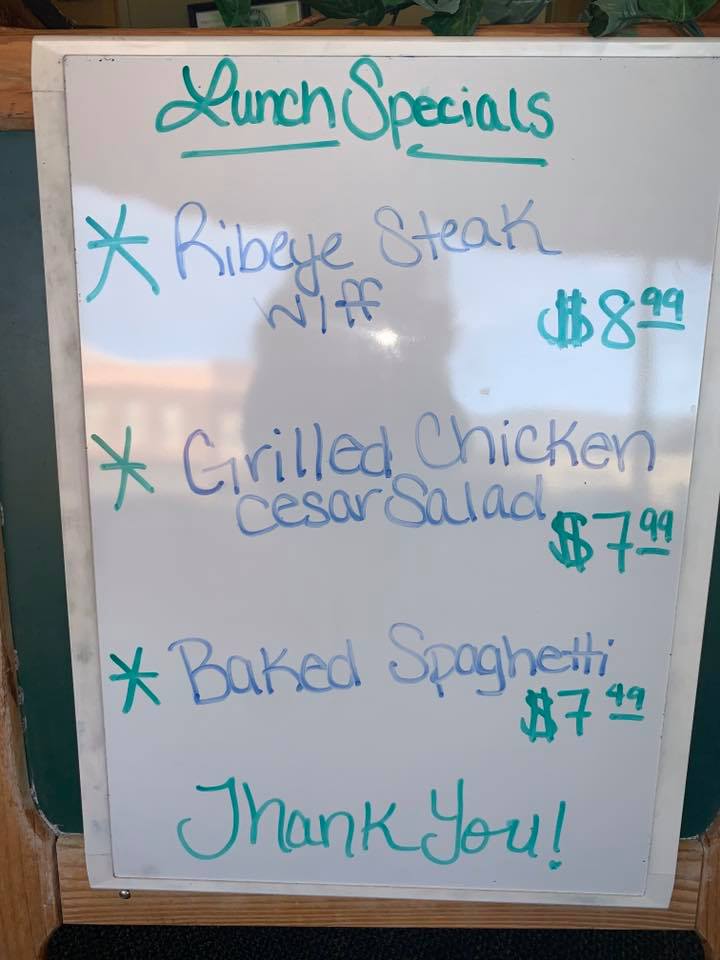 Lunch Specials
* Ribeye Steak
w/ff $8.99
* Grilled Chicken
Cesar Salad $7.99
* Baked Spaghetti
$7.49
Thank You!